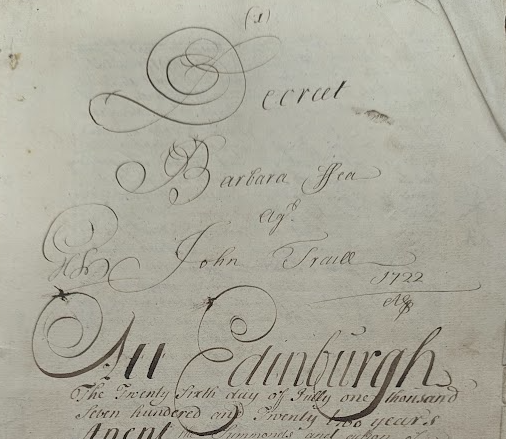 (1)
Decreet
Barbara ffea
agt
John Traill
1722
Att Edinburgh
The Twenty Sixth day of July one thousand
Seven hundered and Twenty two years
Anent the Summonds and action of